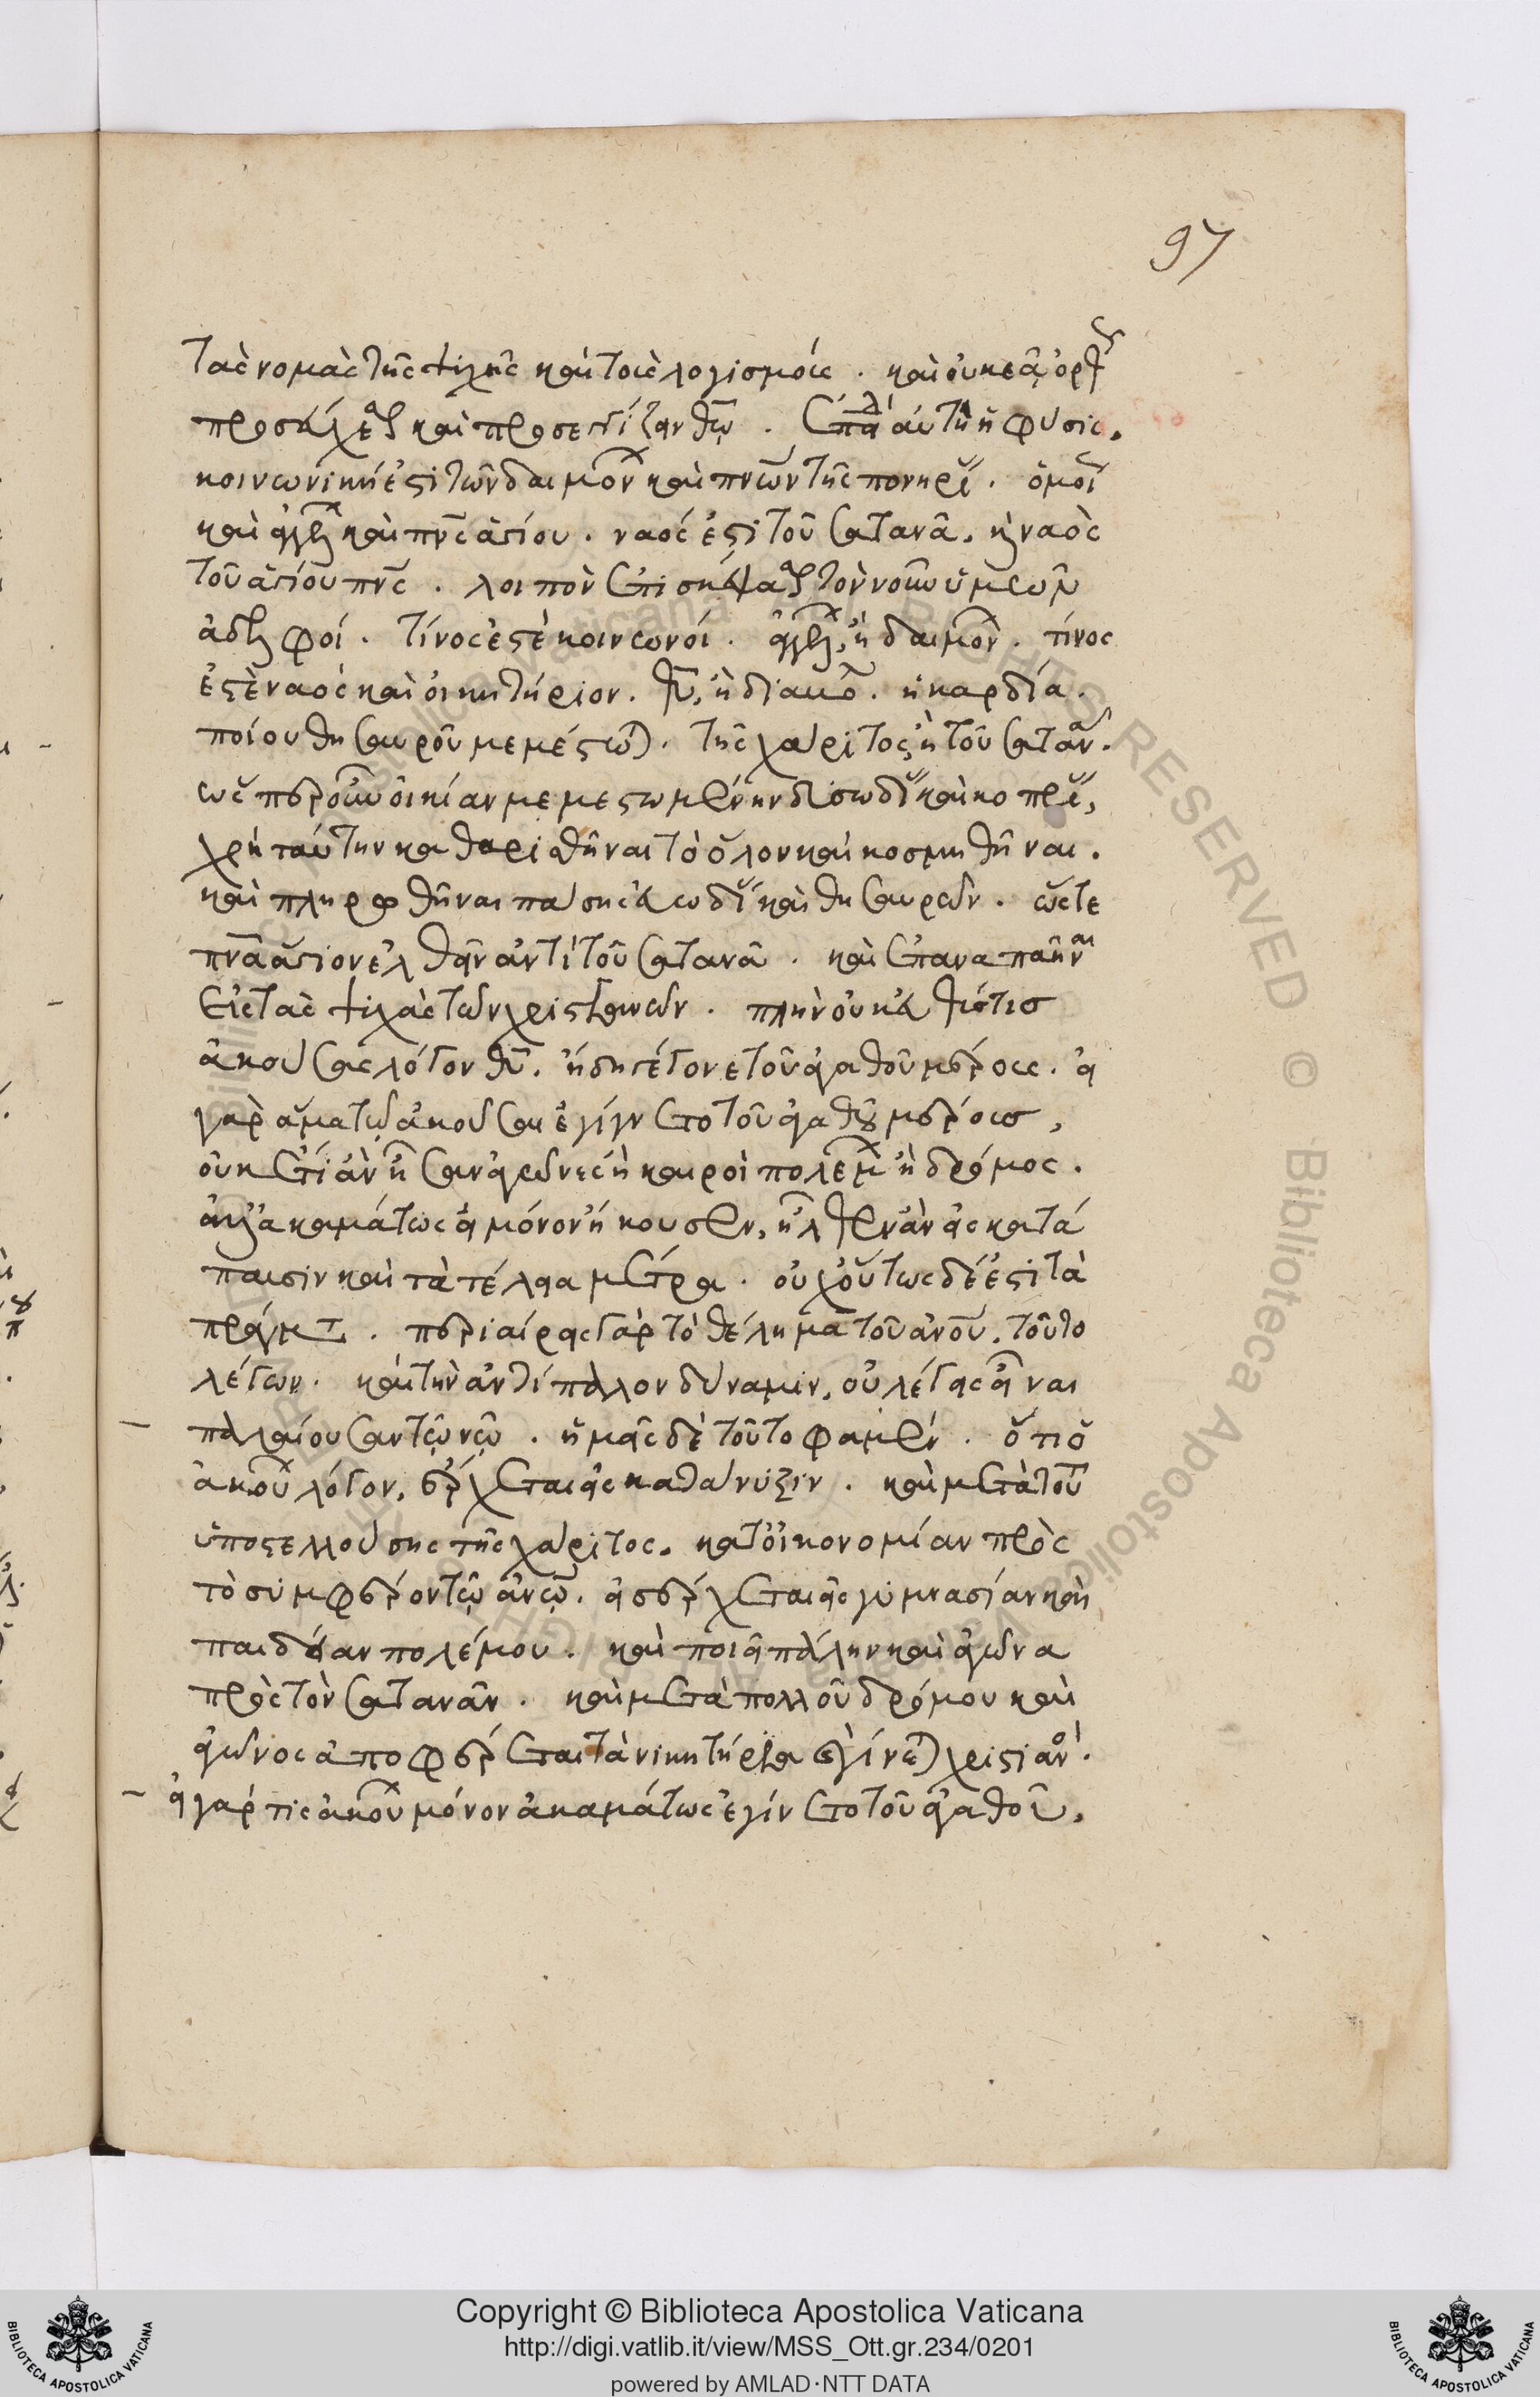 97
τὰς νομὰς τῆς ψυχῆς καὶ τοὺς λογισμούς. καὶ οὐκ ἐᾷ ὀρθῶς
προσεύχεσθαι καὶ προσεγγίζειν θῶ. αὐτὴ ἡ φύσις,
κοινωνική ἐστι τῶν δαιμόνων καὶ πνων τῆς πονηρίας. ὁμοίως
καὶ ἀγγέλων καὶ πνς ἁγίου. ναός ἐστι τοῦ σατανᾶ, ἢ ναὸς
τοῦ ἁγίου πνς. λοιπὸν ἐπισκέψασθε τὸν νοῦν ὑμῶν
ἀδελφοί. τίνος ἐστὲ κοινωνοί. ἀγγέλων, ἢ δαιμόνων. τίνος
ἐστὲ ναὸς καὶ οἰκητήριον. θυ, ἢ διαβόλου. ἡ καρδία.
ποίου θησαυροῦ μεμέστωται. τῆς χάριτος, ἢ τοῦ σατανᾶ.
ὥσπερ οὖν οἰκίαν μεμεστωμένην δυσωδίας καὶ κοπρίας,
χρὴ ταύτην καθαρισθῆναι τὸ ὅλον καὶ κοσμηθῆναι.
καὶ πληρωθῆναι πάσης εὐωδίας καὶ θησαυρῶν. ὥστε
πνα ἅγιον ἐλθεῖν ἀντὶ τοῦ σατανᾶ. καὶ ἐπαναπαῆναι
εἰς τὰς ψυχὰς τῶν χριστιανῶν. πλὴν οὐκ εὐθύς τισ
ἀκούσας λόγον θυ. ἤδη γέγονε τοῦ ἀγαθοῦ μέρους. εἰ
γὰρ ἅμα τῷ ἀκοῦσαι ἐγίγνετο τοῦ ἀγαθοῦ μέρουσ,
οὐκέτι ἂν ἦσαν ἀγῶνες ἢ καιροὶ πολέμου ἢ δρόμος.
ἀλλ' ἀκαμάτως εἰ μόνον ἤκουσεν, ἦλθεν ἂν εἰς κατά
παυσιν καὶ τὰ τέλεια μέτρα. οὐχ οὕτως δέ ἐστι τὰ
πράγματα. περιαίρεις γὰρ τὸ θέλημα τοῦ ανου, τοῦτο
λέγων. καὶ τὴν ἀντίπαλον δύναμιν, οὐ λέγεις εἶναι
παλαίουσαν τῷ νῷ. ἡμεῖς δὲ τοῦτο φαμέν. ὅτι ὁ
ἀκούων λόγον, ἔρχεται εἰς κατάνυξιν. καὶ μετὰ τοῦτο
ὑποστελλούσης τῆς χάριτος. κατ' οἰκονομίαν πρὸς
τὸ συμφέρον τῷ ανω. εἰσέρχεται εἰς γυμνασίαν καὶ
παιδείαν πολέμου. καὶ ποιεῖ πάλην καὶ ἀγῶνα
πρὸς τὸν σατανᾶν. καὶ μετὰ πολλοῦ δρόμου καὶ
ἀγῶνος ἀποφέρεται τὰ νικητήρια καὶ γίνεται χριστιανός.
εἰ γάρ τις ἀκούων μόνον ἀκαμάτως ἐγίνετο τοῦ ἀγαθοῦ,
Copyright © Biblioteca Apostolica Vaticana
http://digi.vatlib.it/view/MSS_Ott.gr.234/0201
powered by AMLAD·NTT DATA